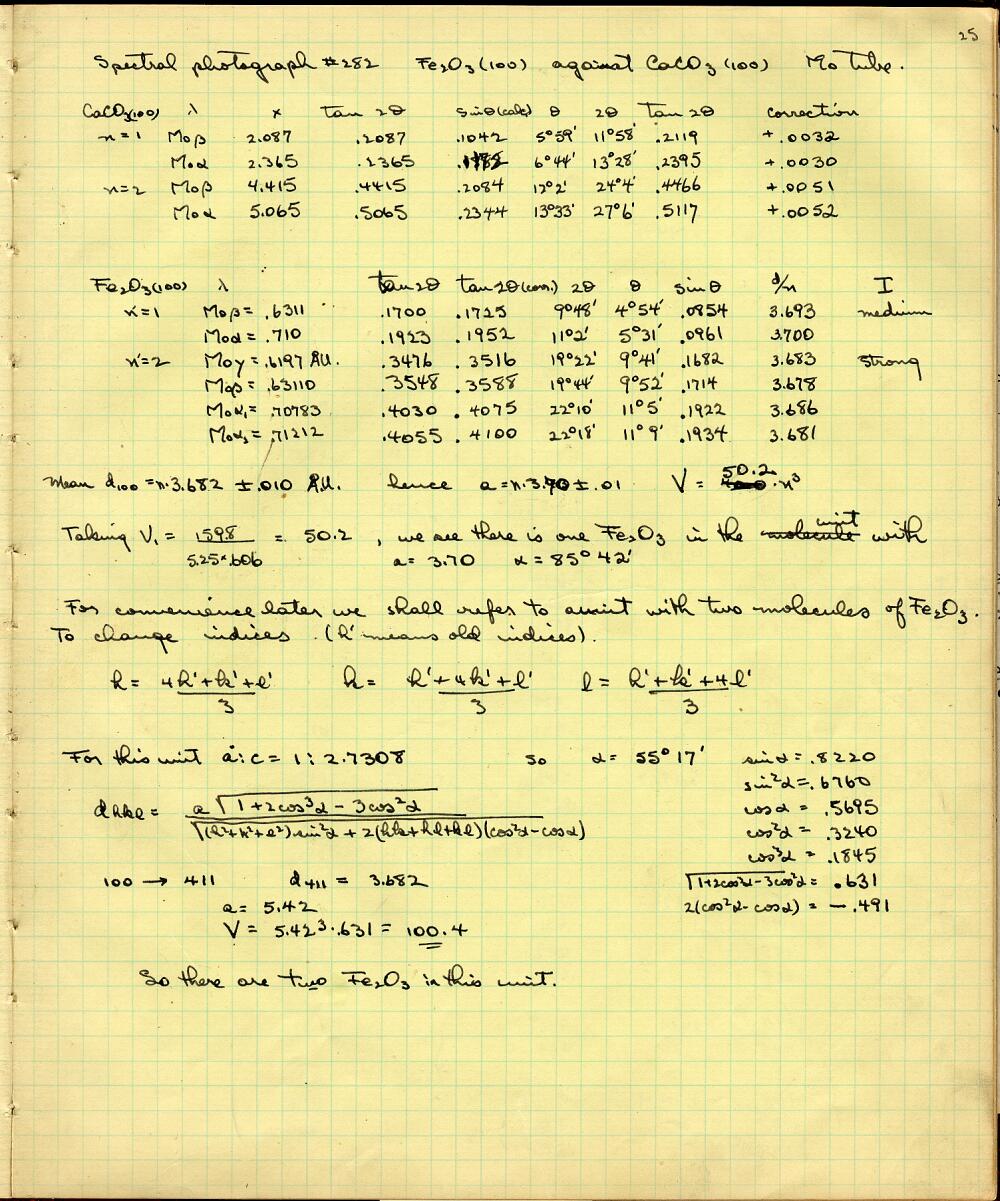 25
Spectral photograph #282 Fe₂O₃(100) against CaCO₃(100) Mo tube.
CaCO₃(100) λ x tan 2θ sin θ(calc) θ 2θ tan 2θ correction
n=1 Moβ 2.087 .2087 .1042 5°59' 11°58' .2119 +.0032
Moα 2.365 .2365 6°44' 13°28' .2395 +.0030
n=2 Moβ 4.415 .4415 .2084 12°2' 24°4' .4466 +.0051
Moα 5.065 .5065 .2344 13°33' 27°6' .5117 +.0052
Fe₂O₃(100) λ tan 2θ tan 2θ(corr.) 2θ θ sin θ d/n I
n=1 Moβ = .6311 .1700 .1725 9°48' 4°54' .0854 3.693 medium
Moα = .710 .1923 .1952 11°2' 5°31' .0961 3.700
n=2 Moγ = .6197 Å.U. .3476 .3516 19°22' 9°41' .1682 3.683 strong
Moβ = .63110 .3548 .3588 19°44' 9°52' .1714 3.678
Moα₁ = .70783 .4030 .4075 22°10' 11°5' .1922 3.686
Moα₂ = .71212 .4055 .4100 22°18' 11°9' .1934 3.681
Mean d₁₀₀ = n·3.682 ± .010 Å.U. hence a = n·3.70 ± .01 V = 50.2·n³
Taking V₁ = 159.8 / 5.25×.606 = 50.2, we see there is one Fe₂O₃ in the molecule unit with
a = 3.70 α = 85°42'
For convenience later we shall refer to a unit with two molecules of Fe₂O₃.
To change indices (h' means old indices).
h = 4h'+k'+l' / 3 k = h'+4k'+l' / 3 l = h'+k'+4l' / 3
For this unit a:c = 1:2.7308 so α = 55°17' sin α = .8220
sin²α = .6760
cos α = .5695
cos²α = .3240
cos³α = .1845
√1+2cos³α−3cos²α = .631
2(cos²α−cos α) = −.491
d_hkl = a√1+2cos³α−3cos²α / √(h²+k²+l²)sin²α + 2(hk+hl+kl)(cos²α−cos α)
100 → 411 d₄₁₁ = 3.682
a = 5.42
V = 5.42³·.631 = 100.4
So there are two Fe₂O₃ in this unit.